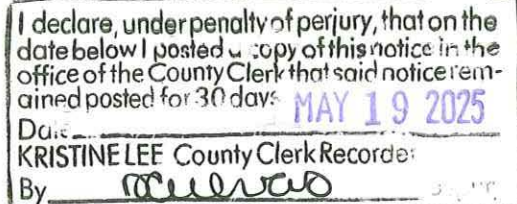 I declare, under penalty of perjury, that on the
date below I posted a copy of this notice in the
office of the County Clerk that said notice rem-
ained posted for 30 days MAY 19 2025
Date
KRISTINE LEE County Clerk Recorder
By